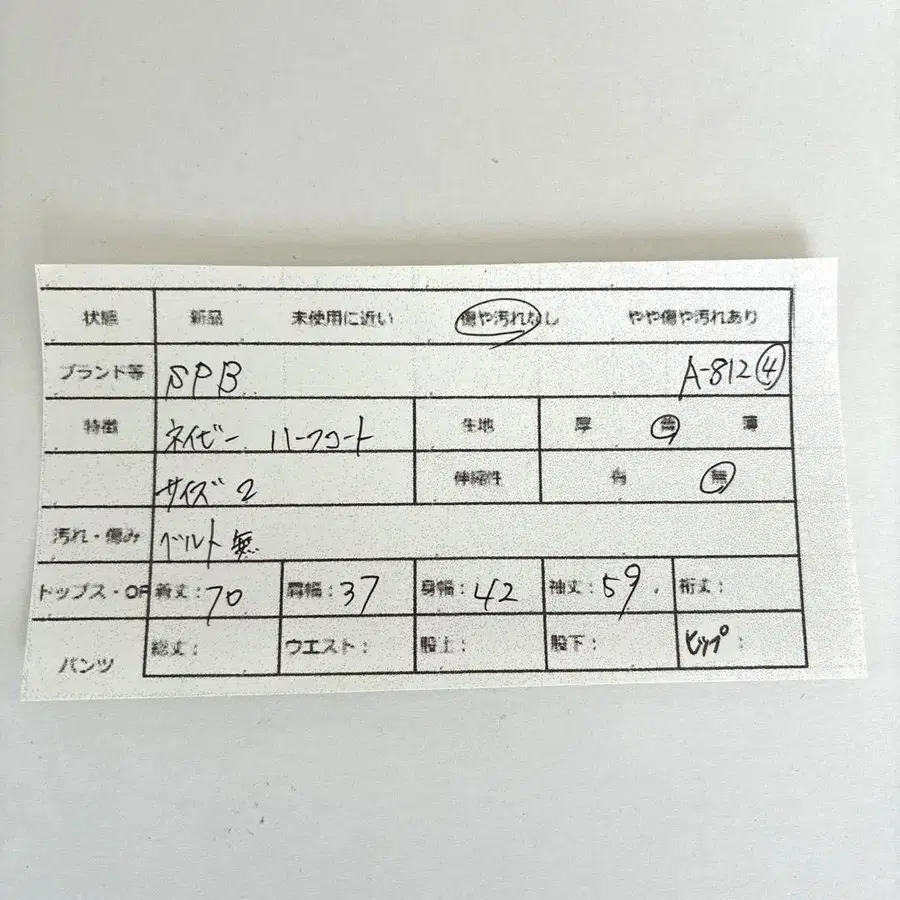 状態 新品 未使用に近い 傷や汚れなし やや傷や汚れあり
ブランド等 SPB A-812④
特徴 ネイビー ハーフコート 生地 厚 普 薄
サイズ2 伸縮性 有 無
汚れ・傷み ベルト無
トップス・OP 着丈:70 肩幅:37 身幅:42 袖丈:59. 裄丈:
パンツ 総丈: ウエスト: 股上: 股下: ヒップ: